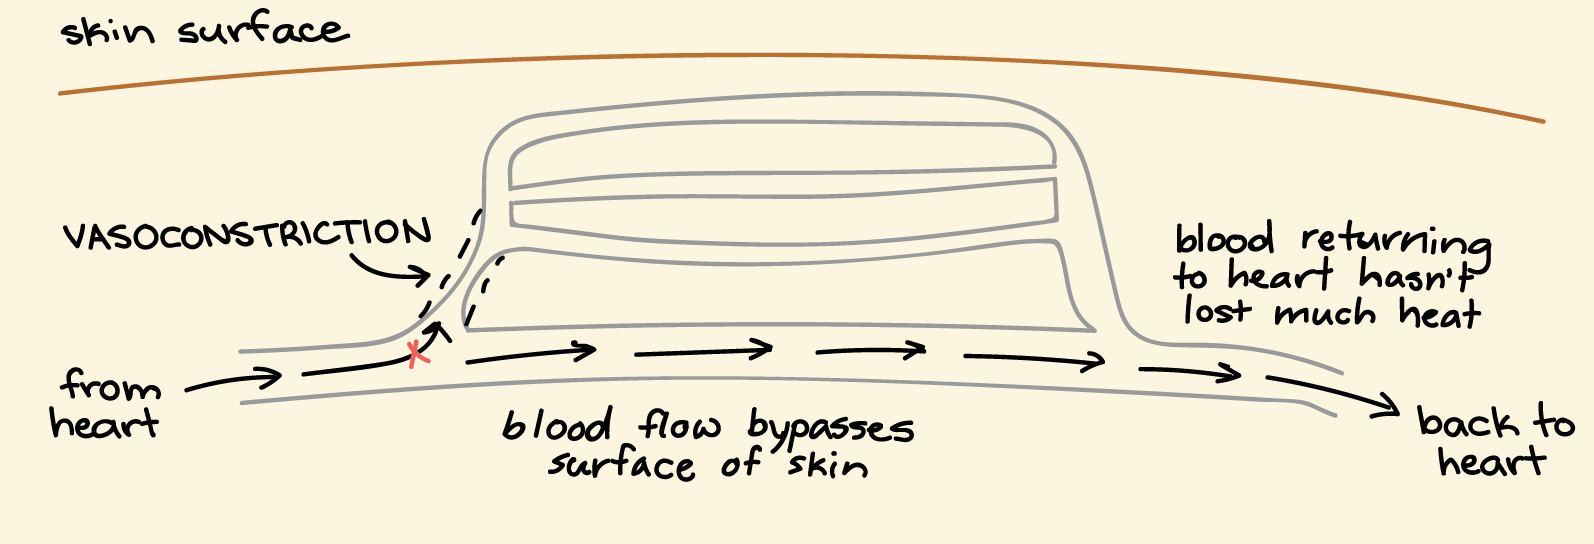 skin surface
VASOCONSTRICTION
blood returning
to heart hasn't
lost much heat
from
heart
blood flow bypasses
surface of skin
back to
heart